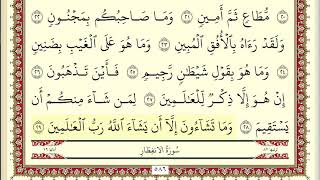 ٢٠ مُّطَاعٍ ثَمَّ أَمِينٍ ٢١ وَمَا صَاحِبُكُم بِمَجْنُونٍ ٢٢
وَلَقَدْ رَءَاهُ بِالْأُفُقِ الْمُبِينِ ٢٣ وَمَا هُوَ عَلَى الْغَيْبِ بِضَنِينٍ
٢٤ وَمَا هُوَ بِقَوْلِ شَيْطَٰنٍ رَّجِيمٍ ٢٥ فَأَيْنَ تَذْهَبُونَ ٢٦
إِنْ هُوَ إِلَّا ذِكْرٌ لِّلْعَٰلَمِينَ ٢٧ لِمَن شَآءَ مِنكُمْ أَن
يَسْتَقِيمَ ٢٨ وَمَا تَشَآءُونَ إِلَّآ أَن يَشَآءَ اللَّهُ رَبُّ الْعَٰلَمِينَ ٢٩
ترتيبها ٨٢ سُورَةُ الِانفِطَارِ آياتها ١٩
٥٨٦